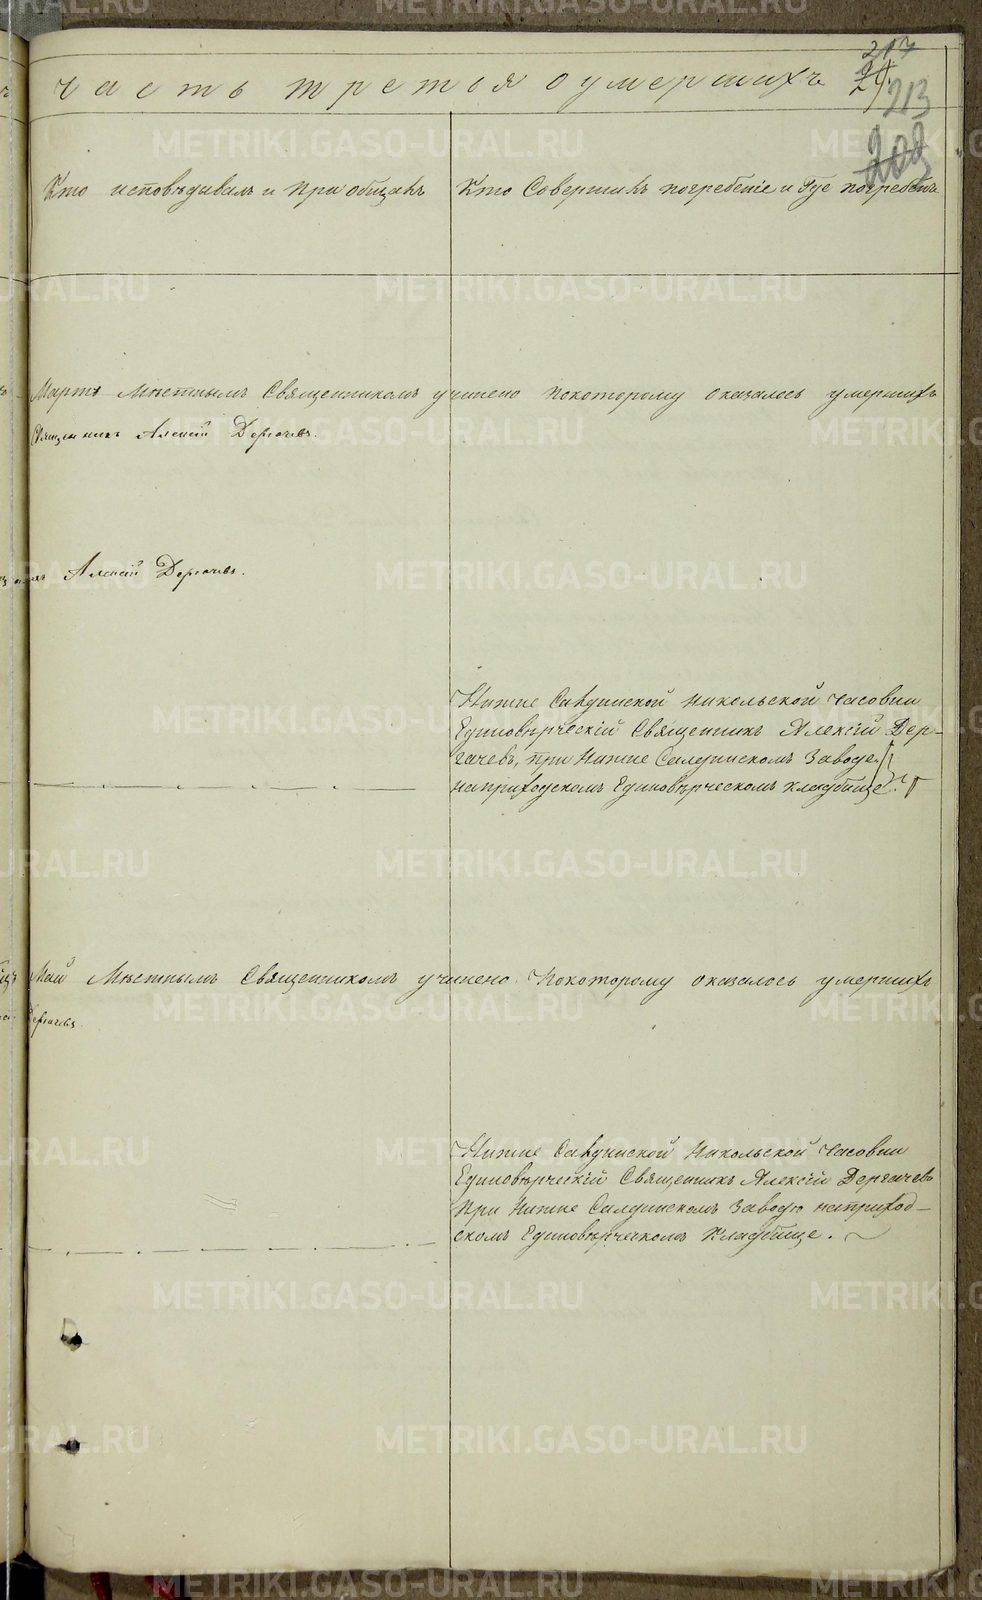 213
213
часть третья о умершихъ
Кто исповѣдивалъ и приобщалъ
Кто Совершилъ погребеніе и Где погребенъ
Мартъ Мѣстнымъ Священникомъ учинено Покоторому оказалось умершихъ
Священникъ Алексій Дергачевъ.
Алексій Дергачевъ.
Нижне Салдинской Никольской Часовни
Единовѣрческій Священникъ Алексій Дер-
гачевъ, при Нижне Салдинскомъ Заводе
наприходскомъ Единовѣрческомъ кладбище.
Май Мѣстнымъ Священникомъ учинено Покоторому оказалось умершихъ
Дергачевъ.
Нижне Салдинской Никольской Часовни
Единовѣрческій Священникъ Алексій Дергачевъ
При Нижне Салдинскомъ Заводѣ наприход-
скомъ Единовѣрческомъ Кладбище.
METRIKI.GASO-URAL.RU